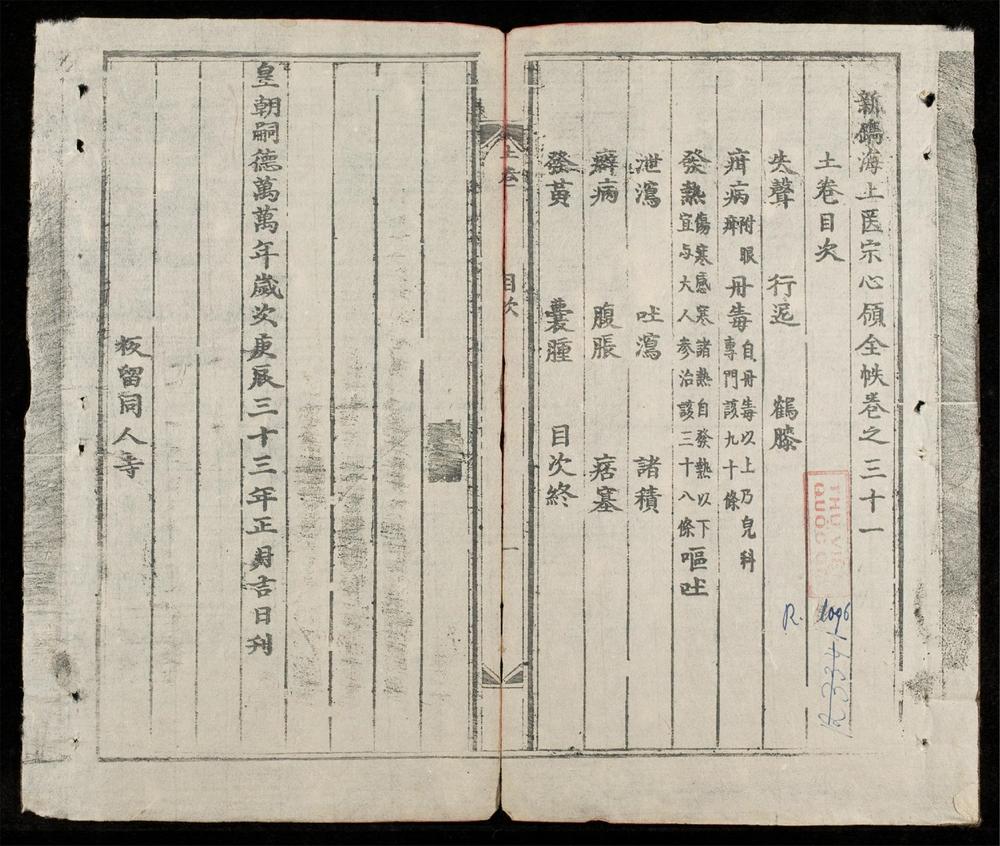 新鐫海上医宗心領全帙卷之三十一
土卷目次
失聲 行遲 鶴膝
疳病 附眼疳 丹毒 自丹毒以上乃皃科專門該九十條
發熱 傷寒感寒諸熱自發熱以下宜与大人參治該三十八條 嘔吐
泄瀉 吐瀉 諸積
癖病 腹脹 痞塞
發黃 囊腫 目次終
THƯ VIỆ
QUỐC
R. 1096
R.334
土卷
目次
一
皇朝嗣德萬萬年歲次庚辰三十三年正月吉日刊
板留同人寺